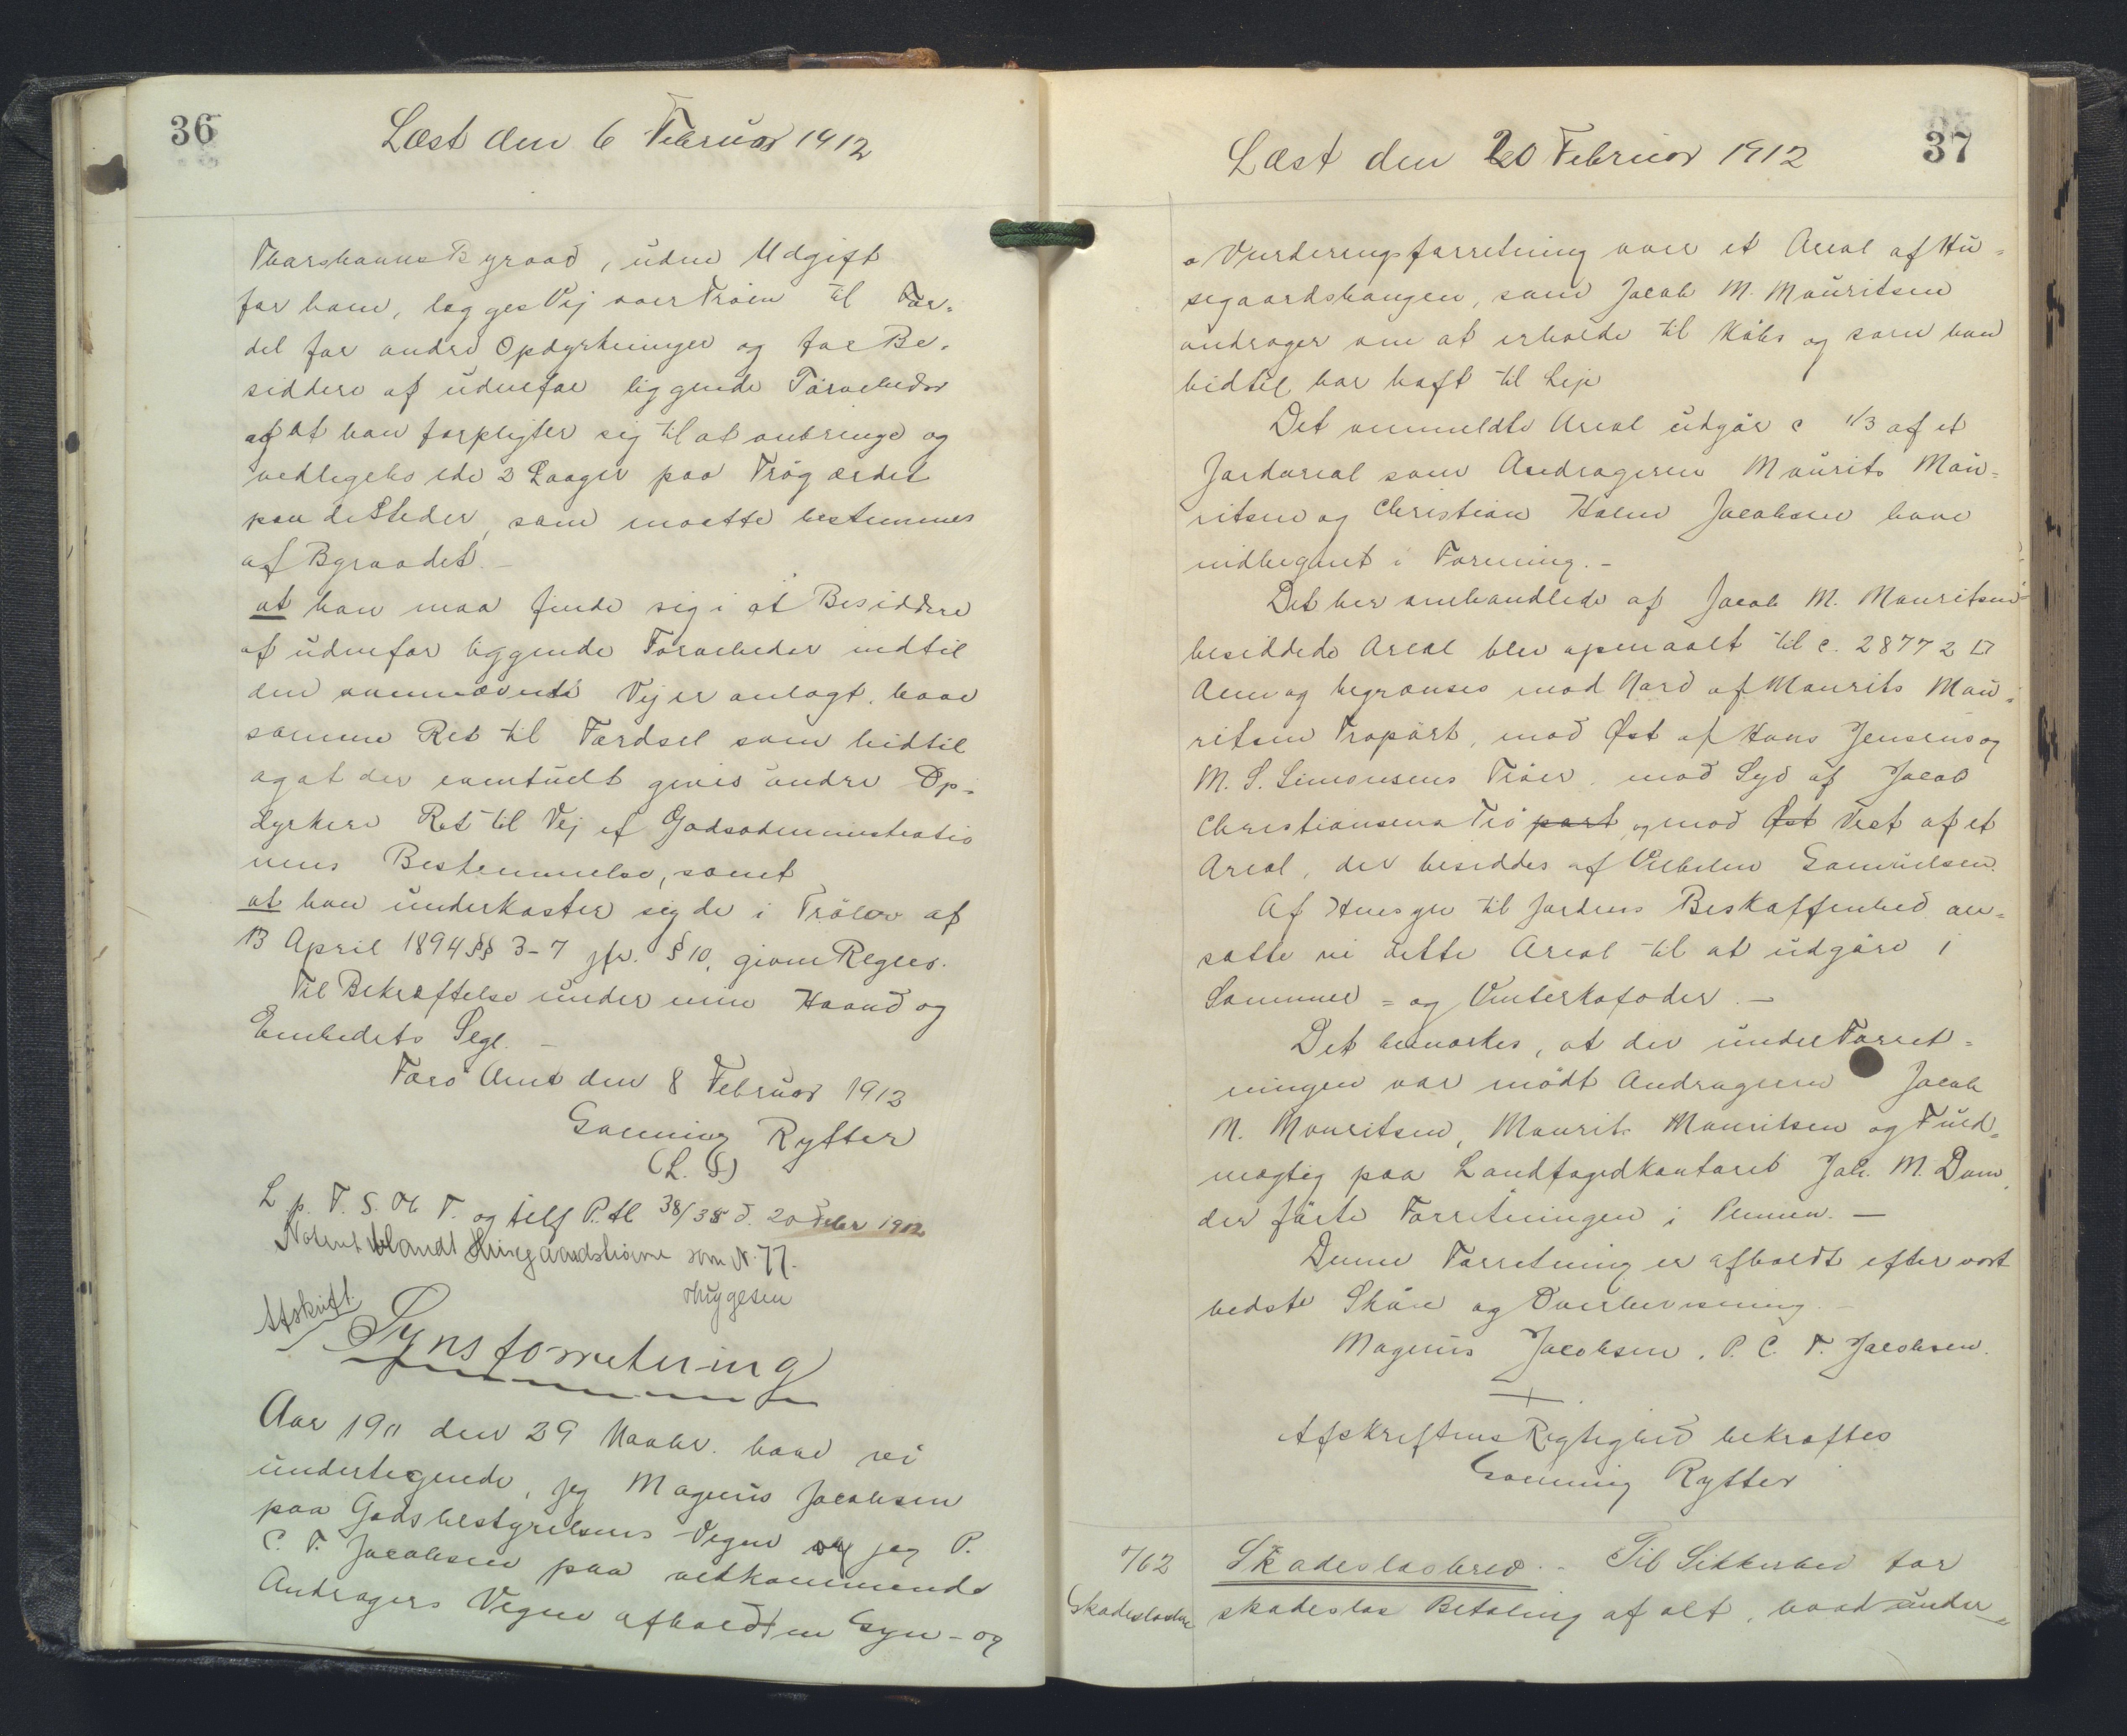 36
Læst den 6 Februar 1912
Thorshavns Byraad, uden Udgift
for ham, lægges Vej over Tröen til For-
del for andre Opdyrkninger og for Be-
siddere af udenfor liggende Törvebeder
og at han forpligter sig til at anbringe og
vedligeholde 2 Laager paa Trög ærdet
paa de Steder, som maatte bestemmes
af Byraadet.
at han maa finde sig i at Besiddere
af udenfor liggende Törvebeder indtil
den omnævnte Vej er anlagt, have
samme Ret til Færdsel som hidtil
og at der eventuelt gives andre Op-
dyrkere Ret til Vej ef Godsadministratio
nens Bestemmelse, samt
at han underkaster sig de i Trölov af
13 April 1894 §§ 3-7 jfr. § 10, givne Regler.
Til Bekræftelse under min Haand og
Embedets Segl. –
Færö Amt den 8 Februar 1912
Gonning Rytter
(L. S)
L p. T. S. Ob T. og tilf P. tl 38/38 d. 20 Febr 1912
Noteret blandt Husegaardstrøerne som N. 77.
Afskrift.
Synsforretning
Aar 1911 den 29 Novbr. have vi
undertegnede, jeg Magnus Jacobsen
paa Godsbestyrelsens Vegne og jeg P.
C. T. Jacobsen paa vedkommende
Andragers Vegne afholdt en Syn- og
37
Læst den 20 Februar 1912
Vurderingsforretning over et Areal af Hu-
segaardshaugen, som Jacob M. Mouritsen
andrager om at erholde til Købs og som han
hidtil har haft til Leje
Det anmeldte Areal udgör c 1/3 af et
Jordareal som Andrageren Mourits Mou-
ritsen og Christian Holm Jacobsen have
indhegnet i Forening. –
Det her omhandlede af Jacob M. Mouritsen
besiddede Areal blev opmaalt til c. 28772 □
Alen og begrænses mod Nord af Mourits Mou-
ritsen Tropart, mod Øst af Hans Jensens og
M. S. Simonsens Tröer, mod Syd af Jacob
Christiansens Trö part, og mod Øst Vest af et
Areal, der besiddes af Vilhelm Samuelsen.
Af Hensyn til Jordens Beskaffenhed an-
satte vi dette Areal til at udgöre 1
Sommer- og Vinterkofoder. –
Det bemærkes, at der under Forret-
ningen var mödt Andrageren Jacob
M. Mouritsen, Mourits Mouritsen og Fuld-
mægtig paa Landfogedkontoret Joh. M. Dam,
der förte Forretningen i Pennen. –
Denne Forretning er afholdt efter vort
bedste Skön og Overbevisning. –
Magnus Jacobsen. P. C. T. Jacobsen.
Afskriftens Rigtighed bekræftes
Gonning Rytter
762
Skadesløsbrev
Skadesløsbrev. – Til Sikkerhed for
skadesløs Betaling af alt, hvad under-